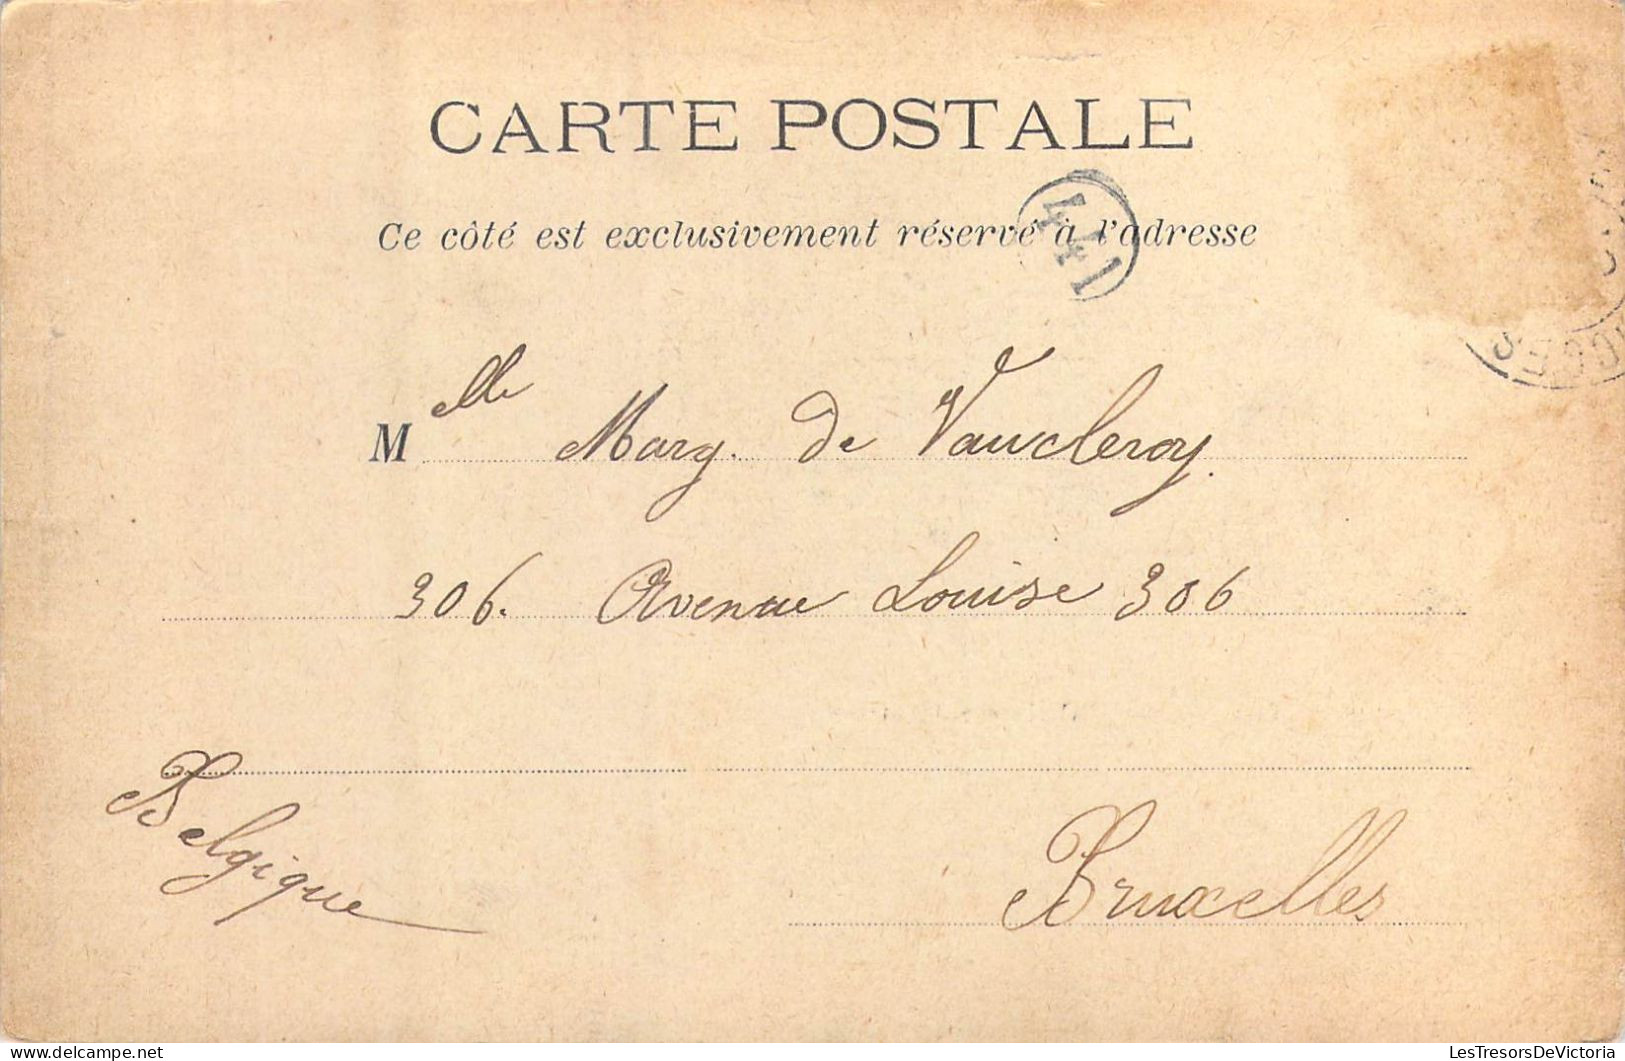 CARTE POSTALE
441
Ce côté est exclusivement réservé à l'adresse
Melle Marg. de Vaucleroy.
306. Avenue Louise 306
Belgique
Bruxelles
LesTresorsDeVictoria